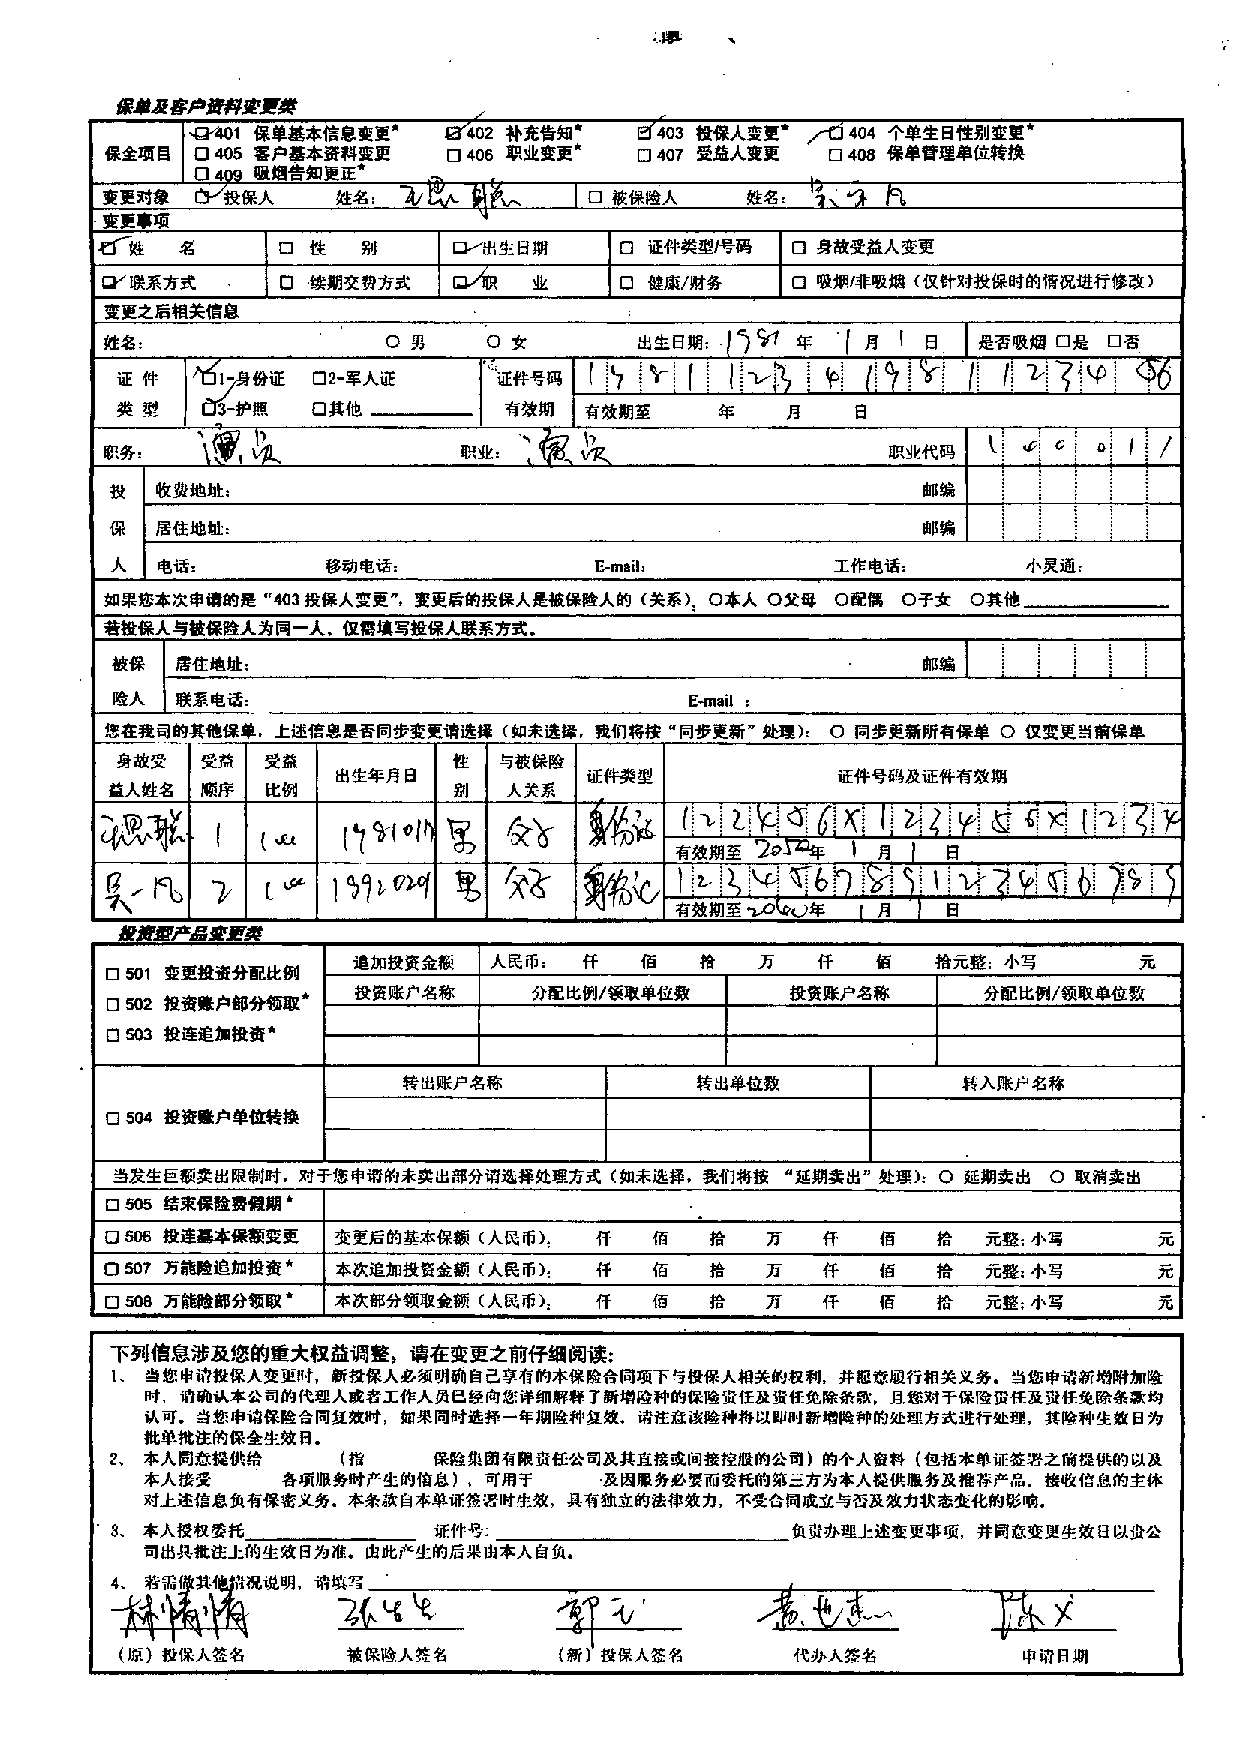 保单及客户资料变更类
保全项目
☑401 保单基本信息变更* ☑402 补充告知* ☑403 投保人变更* ☑404 个单生日性别变更*
□405 客户基本资料变更 □406 职业变更* □407 受益人变更 □408 保单管理单位转换
□409 吸烟告知更正*
变更对象 ☑投保人 姓名: 王思聪 □被保险人 姓名: 吴亦凡
变更事项
☑姓 名 □性 别 ☑出生日期 □证件类型/号码 □身故受益人变更
☑联系方式 □续期交费方式 ☑职 业 □健康/财务 □吸烟/非吸烟(仅针对投保时的情况进行修改)
变更之后相关信息
姓名: ○男 ○女 出生日期: 1981年1月1日 是否吸烟 □是 □否
证件类型 ☑1-身份证 □2-军人证 证件号码
☑3-护照 □其他 有效期 有效期至 年 月 日
职务: 演员 职业: 演员 职业代码
投保人
收费地址: 邮编
居住地址: 邮编
电话: 移动电话: E-mail: 工作电话: 小灵通:
如果您本次申请的是“403 投保人变更”,变更后的投保人是被保险人的(关系): ○本人 ○父母 ○配偶 ○子女 ○其他
若投保人与被保险人为同一人,仅需填写投保人联系方式。
被保险人
居住地址: 邮编
联系电话: E-mail :
您在我司的其他保单,上述信息是否同步变更请选择(如未选择,我们将按“同步更新”处理): ○ 同步更新所有保单 ○ 仅变更当前保单
身故受益人姓名 受益顺序 受益比例 出生年月日 性别 与被保险人关系 证件类型 证件号码及证件有效期
王思聪 1 男 父子 身份证
有效期至 2050年1月1日
吴一凡 2 男 父子 身份证 123456789123456789
有效期至 2060年1月1日
投资型产品变更类
□501 变更投资分配比例
□502 投资账户部分领取*
□503 投连追加投资*
追加投资金额 人民币: 仟 佰 拾 万 仟 佰 拾元整; 小写 元
投资账户名称 分配比例/领取单位数 投资账户名称 分配比例/领取单位数
□504 投资账户单位转换
转出账户名称 转出单位数 转入账户名称
当发生巨额卖出限制时,对于您申请的未卖出部分请选择处理方式(如未选择,我们将按 “延期卖出”处理): ○ 延期卖出 ○ 取消卖出
□505 结束保险费假期*
□506 投连基本保额变更 变更后的基本保额(人民币): 仟 佰 拾 万 仟 佰 拾 元整; 小写 元
□507 万能险追加投资* 本次追加投资金额(人民币): 仟 佰 拾 万 仟 佰 拾 元整; 小写 元
□508 万能险部分领取* 本次部分领取金额(人民币): 仟 佰 拾 万 仟 佰 拾 元整; 小写 元
下列信息涉及您的重大权益调整,请在变更之前仔细阅读:
1、当您申请投保人变更时,新投保人必须明确自己享有的本保险合同项下与投保人相关的权利,并愿意履行相关义务。当您申请新增附加险
时,请确认本公司的代理人或者工作人员已经向您详细解释了新增险种的保险责任及责任免除条款,且您对于保险责任及责任免除条款均
认可。当您申请保险合同复效时,如果同时选择一年期险种复效,请注意该险种将以即时新增险种的处理方式进行处理,其险种生效日为
批单批注的保全生效日。
2、本人同意提供给 (指 保险集团有限责任公司及其直接或间接控股的公司)的个人资料(包括本单证签署之前提供的以及
本人接受 各项服务时产生的信息),可用于 及因服务必要而委托的第三方为本人提供服务及推荐产品。接收信息的主体
对上述信息负有保密义务。本条款自本单证签署时生效,具有独立的法律效力,不受合同成立与否及效力状态变化的影响。
3、本人授权委托 证件号: 负责办理上述变更事项,并同意变更生效日以贵公
司出具批注上的生效日为准。由此产生的后果由本人自负。
4、若需做其他情况说明,请填写
林情情
(原)投保人签名 被保险人签名 (新)投保人签名 代办人签名 申请日期